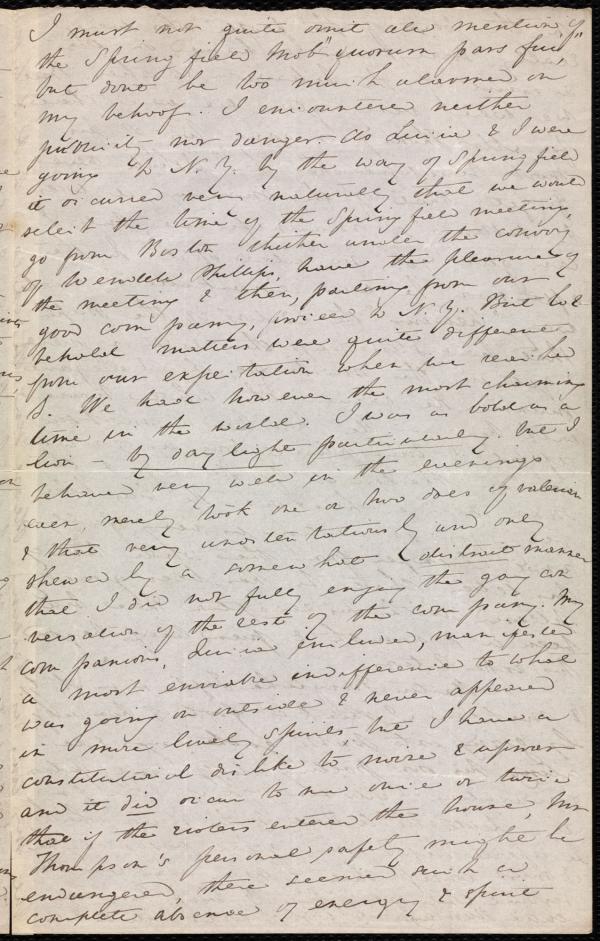 I must not quite omit all mention of
the Spring field Mob "quorum pars fui,"
but dont be too much alarmed on
my behoof. I encountered neither
publicity nor danger. As Lucia & I were
going to N. Y. by the way of Springfield
it occurred very naturally that we would
select the time of the Springfield meeting,
go from Boston thither under the convoy
of Wendell Phillips, have the pleasure of
the meeting & then, parting from our
good company, proceed to N. Y. But lo &
behold matters were quite different
from our expectation when we reached
S. We had however the most charming
time in the world. I was as bold as a
lion – by daylight particularly. But I
behaved very well in the evenings
even, merely took one or two doses of valerian
& that very unostentatiously and only
shewed by a somewhat distrait manner
that I did not fully enjoy the gay con
versation of the rest of the company. My
companions, Lucia included, manifested
a most enviable indifference to what
was going on outside & never appeared
in more lively spirits, but I have a
constitutional dislike to noise & uproar
and it did occur to me once or twice
that if the rioters entered the house, Mr
Thompson's personal safety might be
endangered, there seemed such a
complete absence of energy & spirit